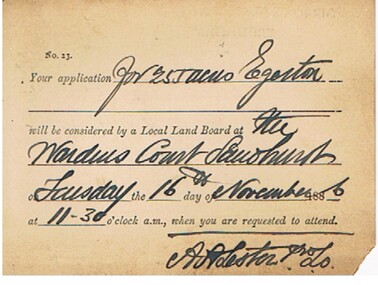 No. 23.
Your application for 25 acres Egerton
will be considered by a Local Land Board at the
Wardens Court
on Tuesday the 16th day of November 1886
at 11-30 o'clock a.m., when you are requested to attend.